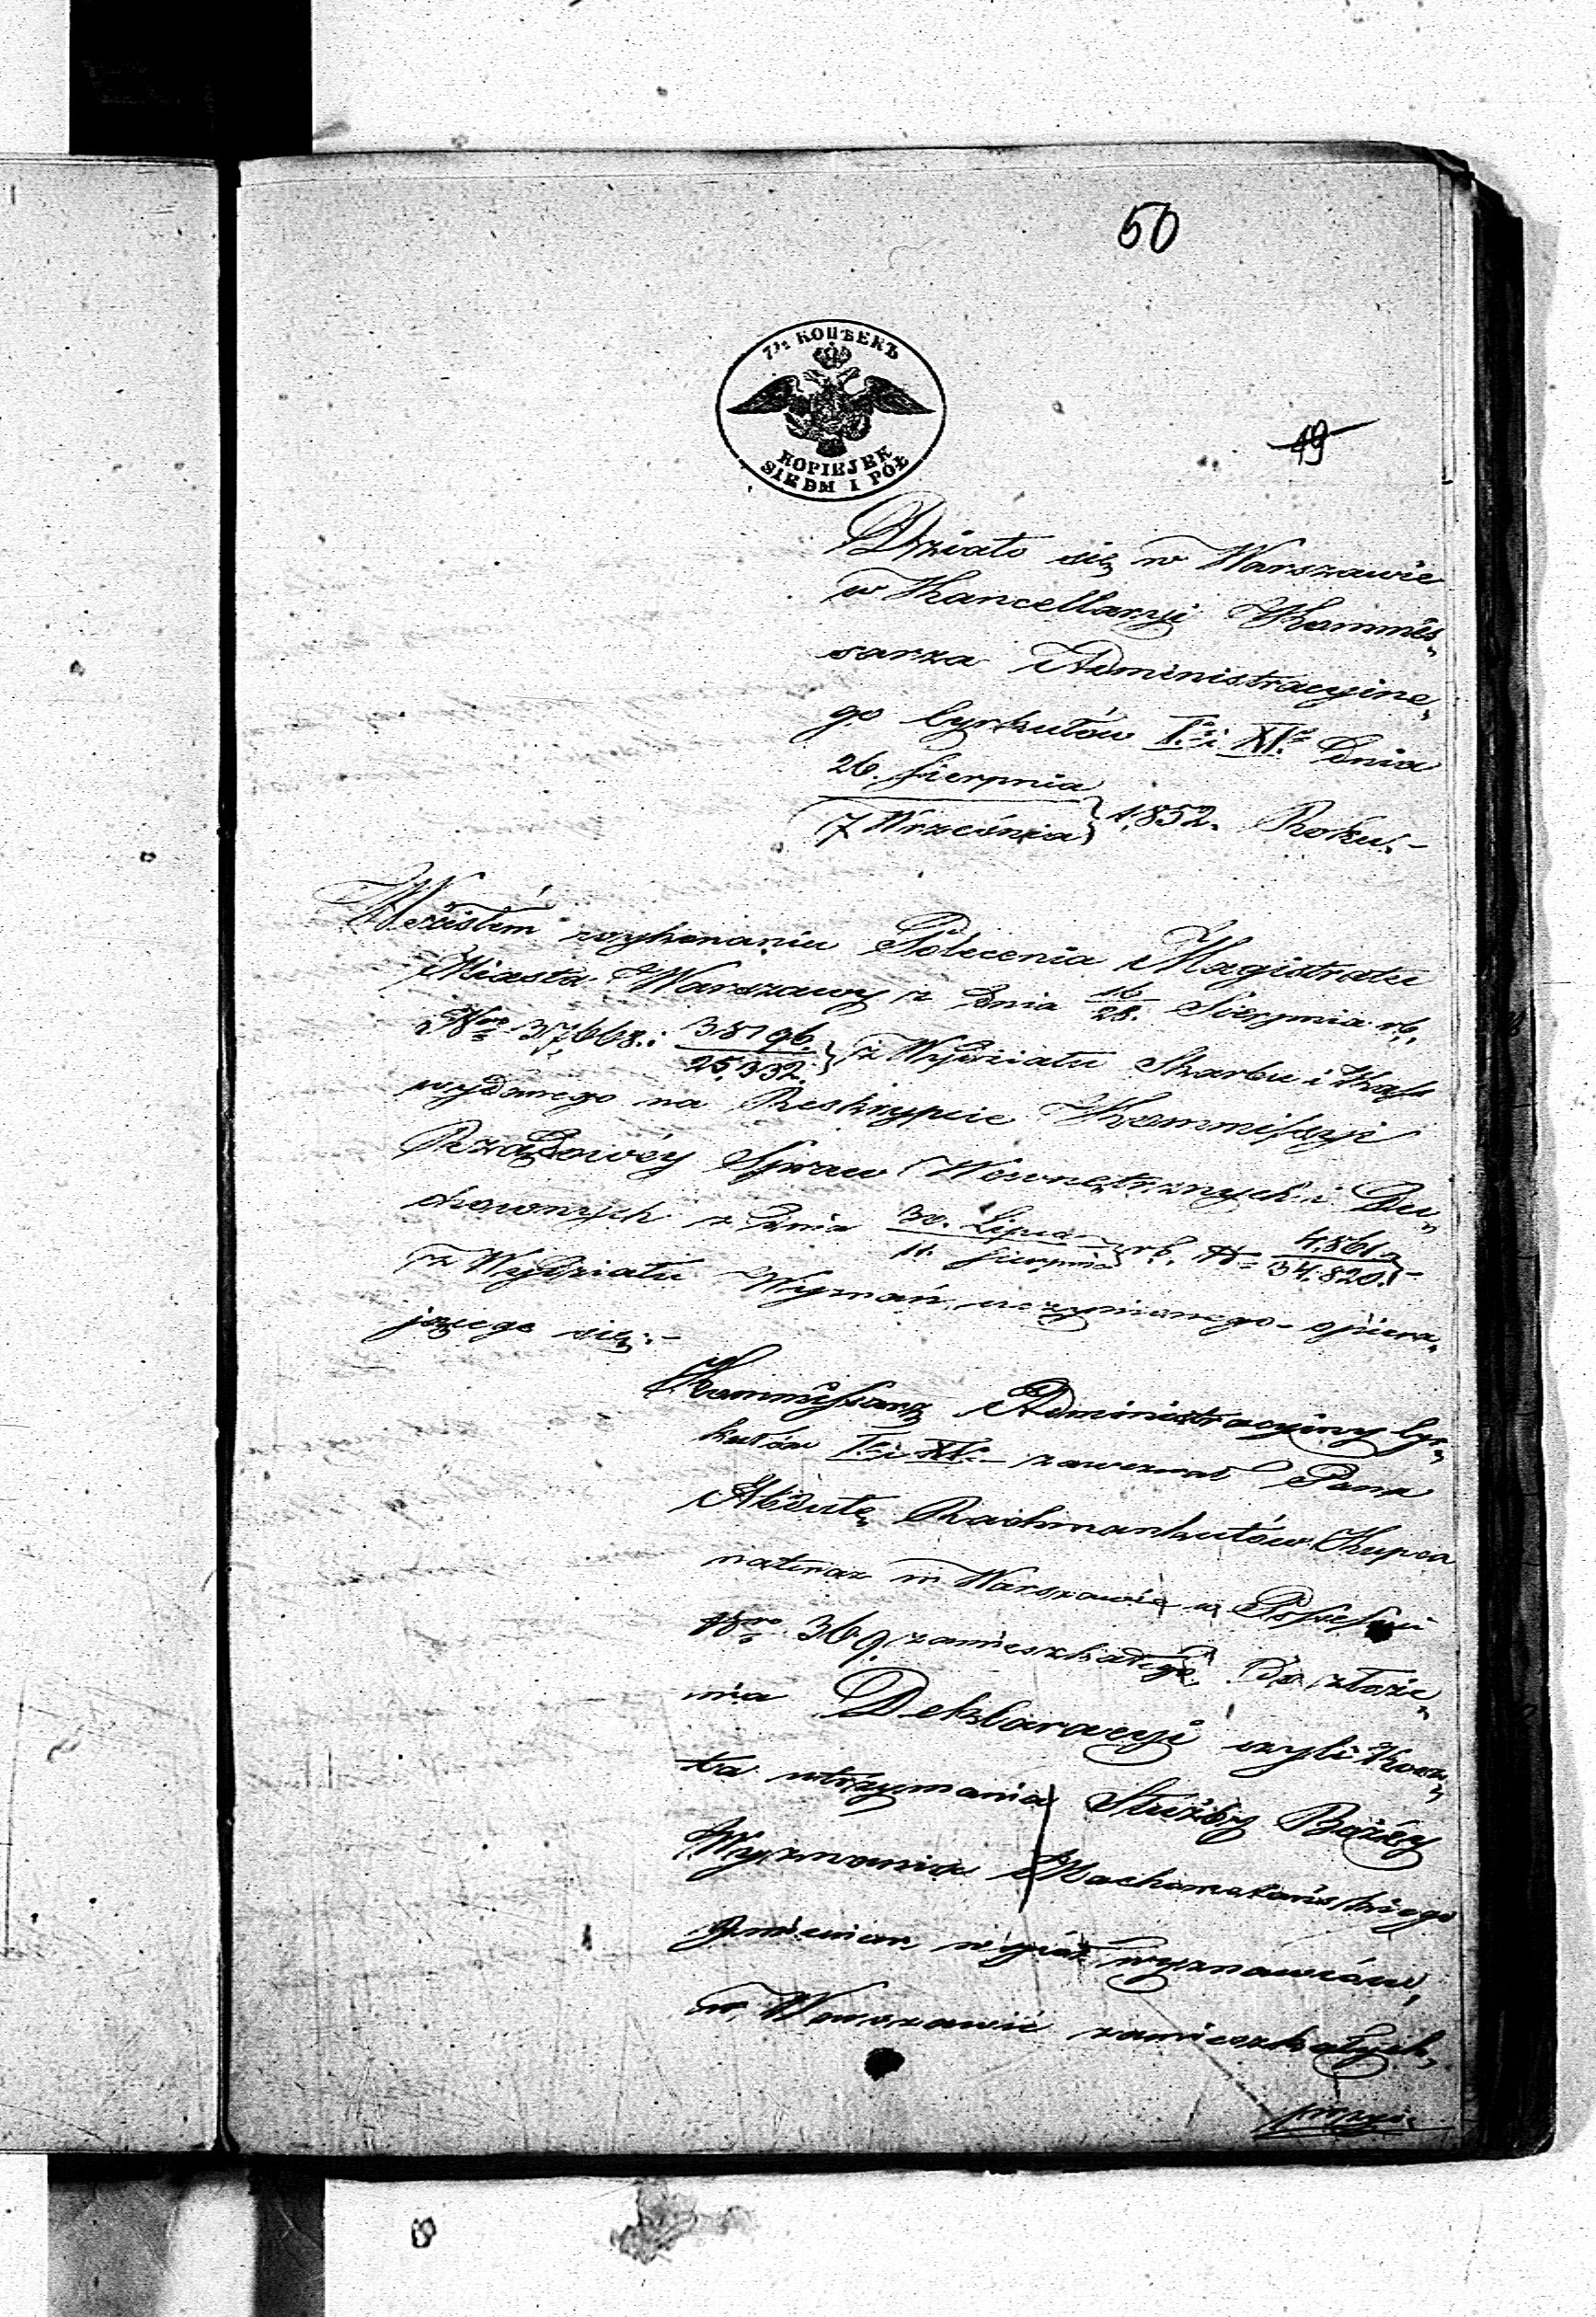 50
7½ КОПѢЕКЪ
KOPIEJEK
SIEDM I PÓŁ
49
Działo się w Warszawie
w Kancellaryi Kommis„
sarza Administracyjne„
go Cyrkułów I.º i XI.º Dnia
26. Sierpnia
7 Września } 1,852. Roku.–
W ścisłém wykonaniu Polecenia Magistratu
Miasta Warszawy z Dnia 16/28. Sierpnia rb.
Nro 37,668.: 38196./25,332. } z Wydziału Skarbu i Kass
wydanego na Reskrypcie Kommissyi
Rządowéy Spraw Wewnętrznych i Du„
chownych z Dnia 30. Lipca/11. Sierpnia } rb. N 4,861/34,820. }–
z Wydziału Wyznań, uczynionego – opiera„
jącego się.–
Kommissarz Administracyiny Cyr„
kułów I.º i XI.º – zawezwał Pana
Abdułę Rachmankułów Kupca
natéraz w Warszawie w Possessyi
Nro 369. zamieszkałego, Do złoże„
nia Deklaracyi czyli Kosz„
ta utrzymania Służby Bożéy
Wyznania Machometańskiego
Imieniem współwyznawców,
w Warszawie zamieszkałych,